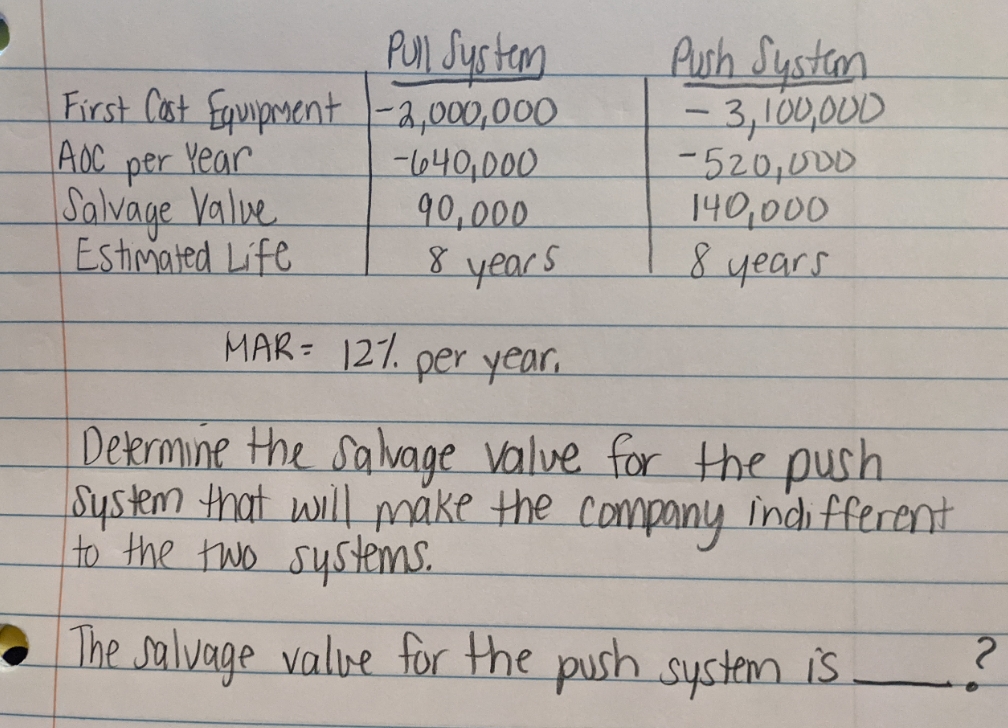 Pull System Push System
First Cost Equipment -2,000,000 -3,100,000
AOC per Year -640,000 -520,000
Salvage Value 90,000 140,000
Estimated Life 8 years 8 years
MAR= 12% per year.
Determine the salvage value for the push
system that will make the company indifferent
to the two systems.
The salvage value for the push system is ____?